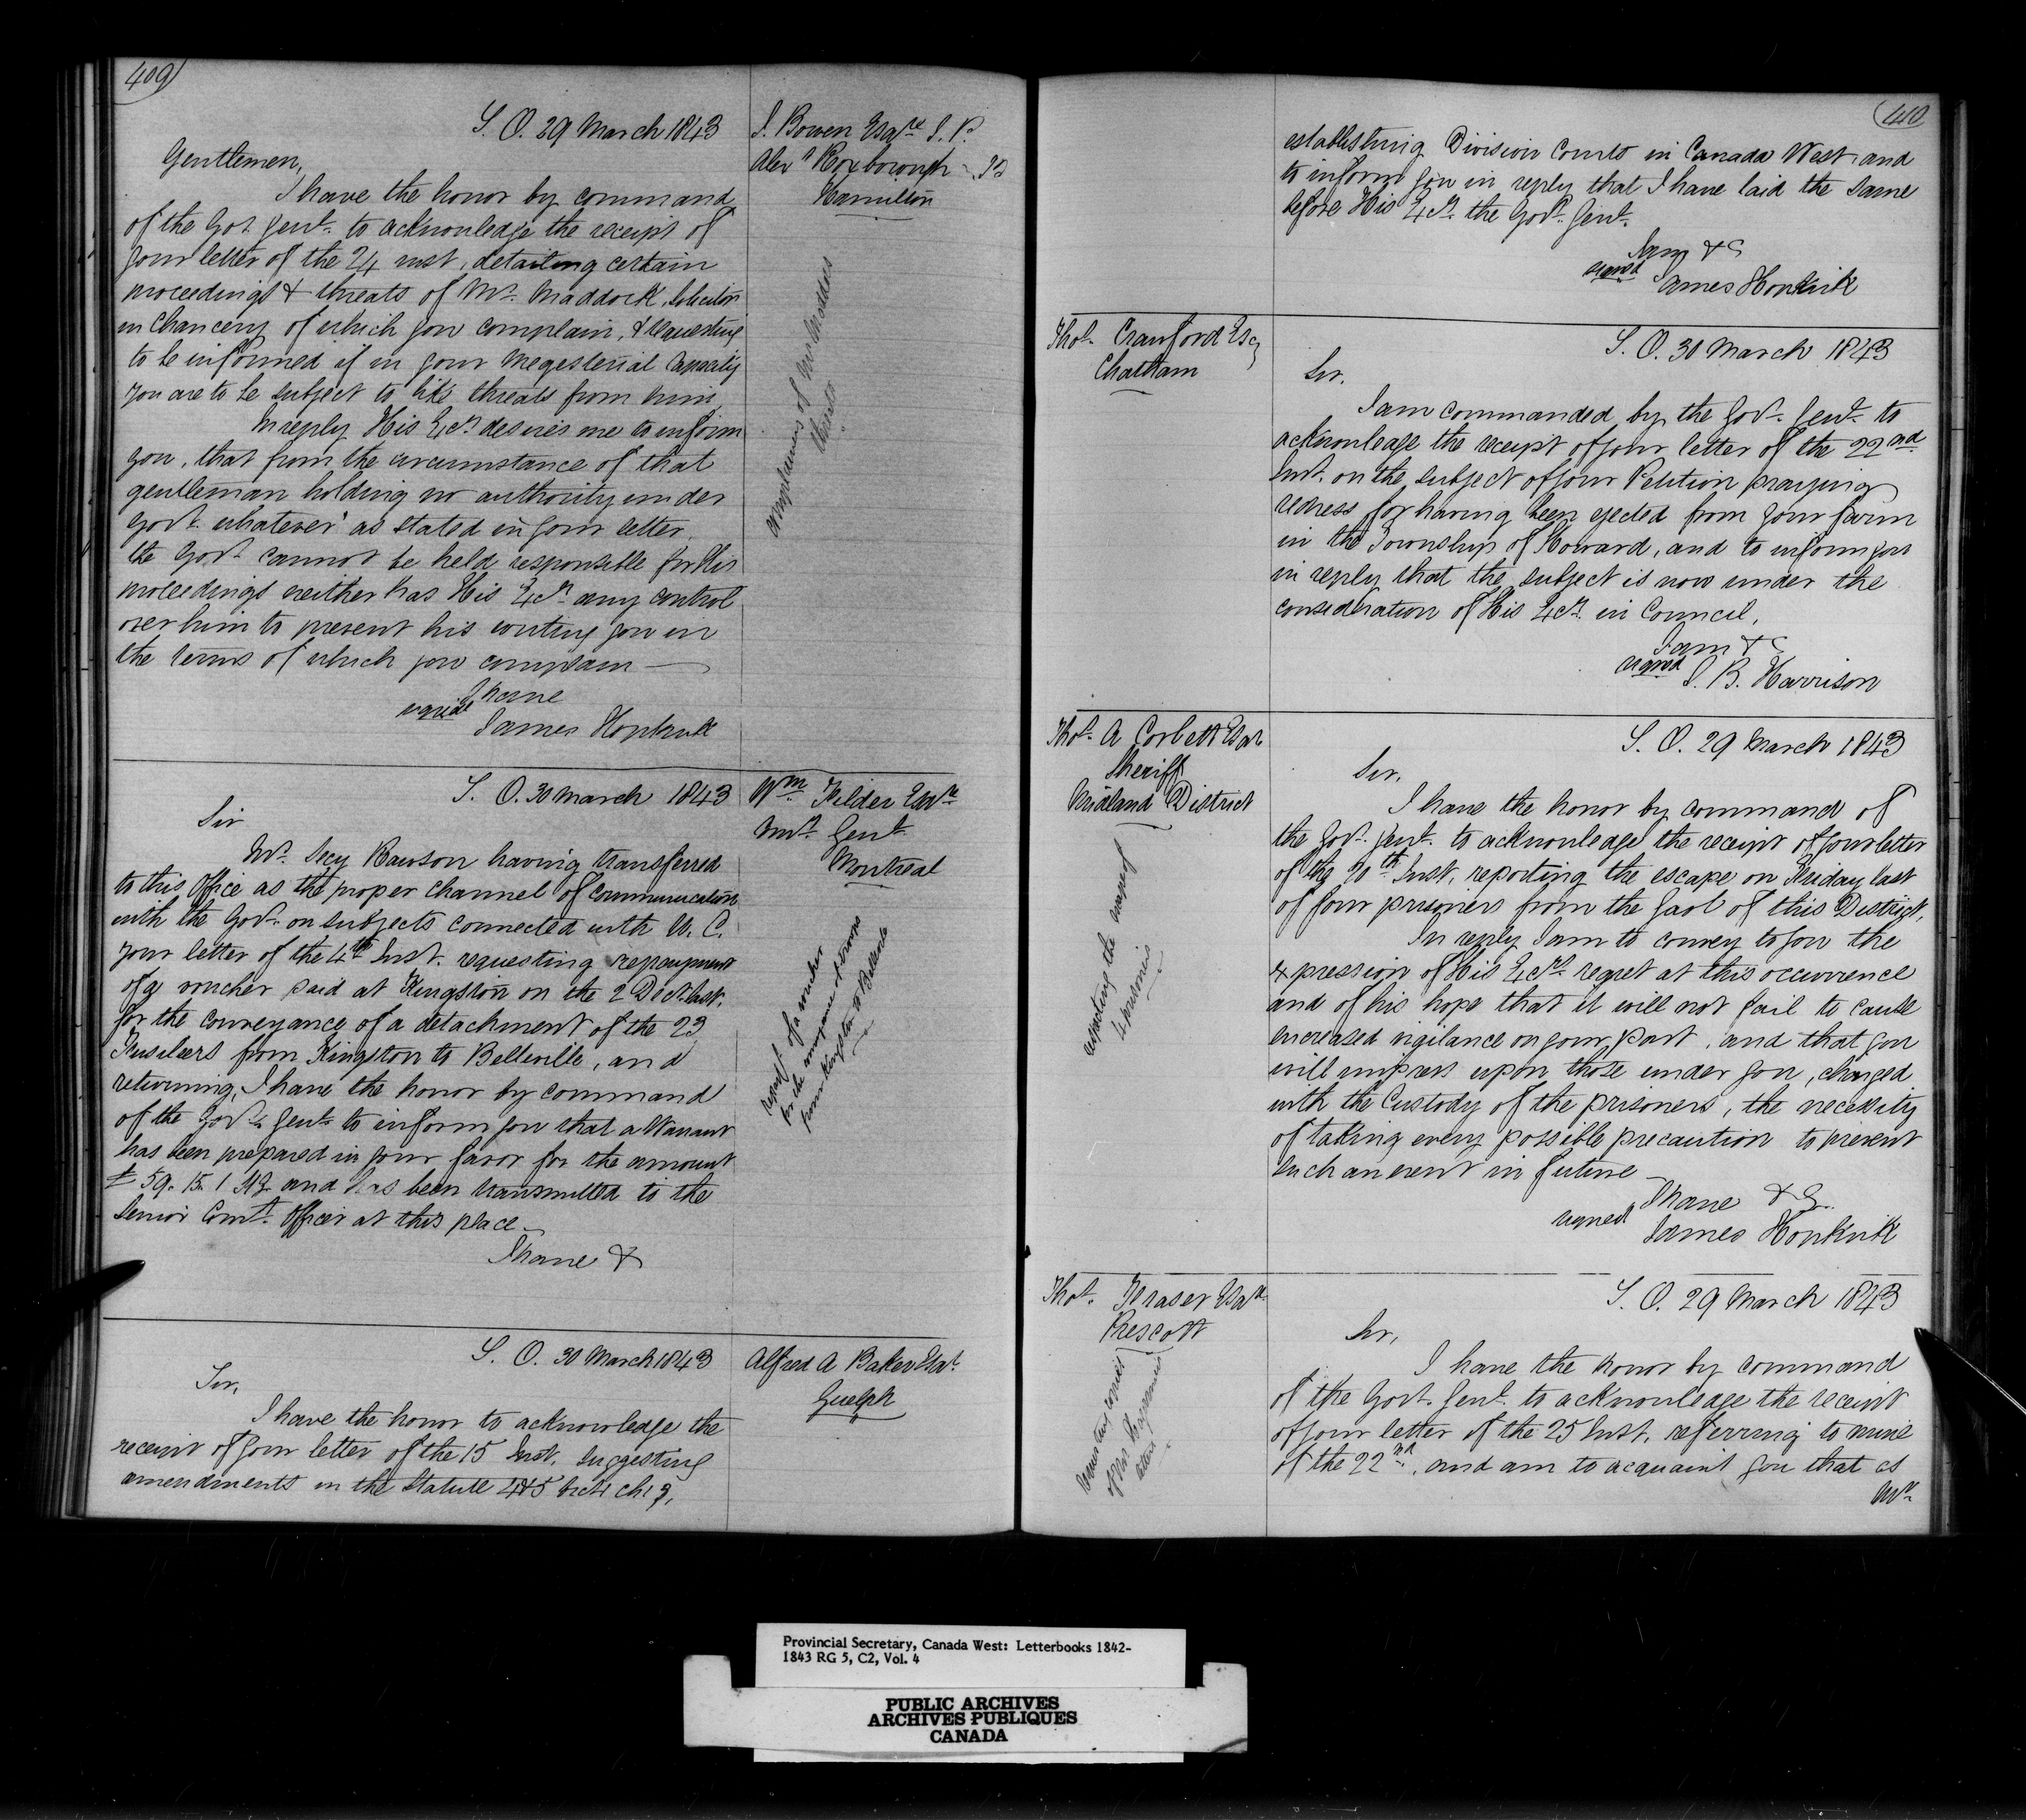 409
S. O. 29 March 1843
J. Bowen Esqre J. P.
Alexr Roxborough - Jd
Hamilton
Gentlemen,
I have the honor by command
of the Gov. Genl. to acknowledge the receipt of
your letter of the 24 inst, detailing certain
proceedings & threats of Mr. Maddock, Solicitor
in Chancery of which you complain, & requesting
to be informed if in your magesterial capacity
you are to be subject to like threats from him.
In reply His Ex. desires me to inform
you, that from the circumstance of that
gentleman holding no authority under
Govt. whatever as stated in your letter,
the Govt. cannot be held responsible for his
proceedings neither has His Ex. any control
over him to prevent his writing you in
the terms of which you complain —
I have
signed James Hopkirk
complainers of Mr Maddocks
threats
S. O. 30 March 1843
Wm. Filder Esqre
Genl.
Montreal
Sir
Mr. Secy Rawson having transferred
to this Office as the proper channel of communication
with the Govt. on subjects connected with U. C.
your letter of the 4th Inst. requesting repayment
of a voucher paid at Kingston on the 2 Dect. last,
for the conveyance of a detachment of the 23
Fusileers from Kingston to Belleville, and
returning, I have the honor by command
of the Govr. Genl. to inform you that a Warrant
has been prepared in your favor for the amount
£ 59. 15. 1 and has been transmitted to the
Senior Comt. Officer at this place —
I have &
repayt. of a voucher
for the conveyance of
from Kingston to Belleville
S. O. 30 March 1843
Alfred A Baker Esqr.
Guelph
Sir,
I have the honor to acknowledge the
receipt of your letter of the 15 Inst. suggesting
amendments in the Statute 4&5 Vict: ch: 3,
410
establishing Division Courts in Canada West and
to inform you in reply that I have laid the same
before His Ex. the Govr. Genl.
I am &c
signed James Hopkirk
Thos. Crawford Esq
Chatham
S. O. 30 March 1843
Sir,
I am commanded by the Govr. Genl. to
acknowledge the receipt of your letter of the 22nd
Inst. on the subject of your Petition praying
redress for having been ejected from your farm
in the Township of Howard, and to inform you
in reply that the subject is now under the
consideration of His Ex. in Council,
I am &c
signed S. B. Harrison
Thos. A Corbett Esqr
Sheriff
Midland District
S. O. 29 March 1843
Sir,
I have the honor by command of
the Govr. Genl. to acknowledge the receipt of your letter
of the 20th Inst, reporting the escape on Friday last
of four prisoners from the Gaol of this District,
In reply I am to convey to you the
expression of His Ex. regret at this occurrence
and of his hope that it will not fail to cause
increased vigilance on your part, and that you
will impress upon those under you, charged
with the Custody of the prisoners, the necessity
of taking every possible precaution to prevent
such an event in future —
I have &c.
signed James Hopkirk
reporting the escape of
4 prisoners
Thos. Fraser Esqr.
Prescott
S. O. 29 March 1843
Sir,
I have the honor by command
of the Govr. Genl. to acknowledge the receipt
of your letter of the 25 Inst, referring to mine
of the 22nd, and am to acquaint you that as
Mr.
requesting copies
of Mr
letter
Provincial Secretary, Canada West: Letterbooks 1842-
1843 RG 5, C2, Vol. 4
PUBLIC ARCHIVES
ARCHIVES PUBLIQUES
CANADA